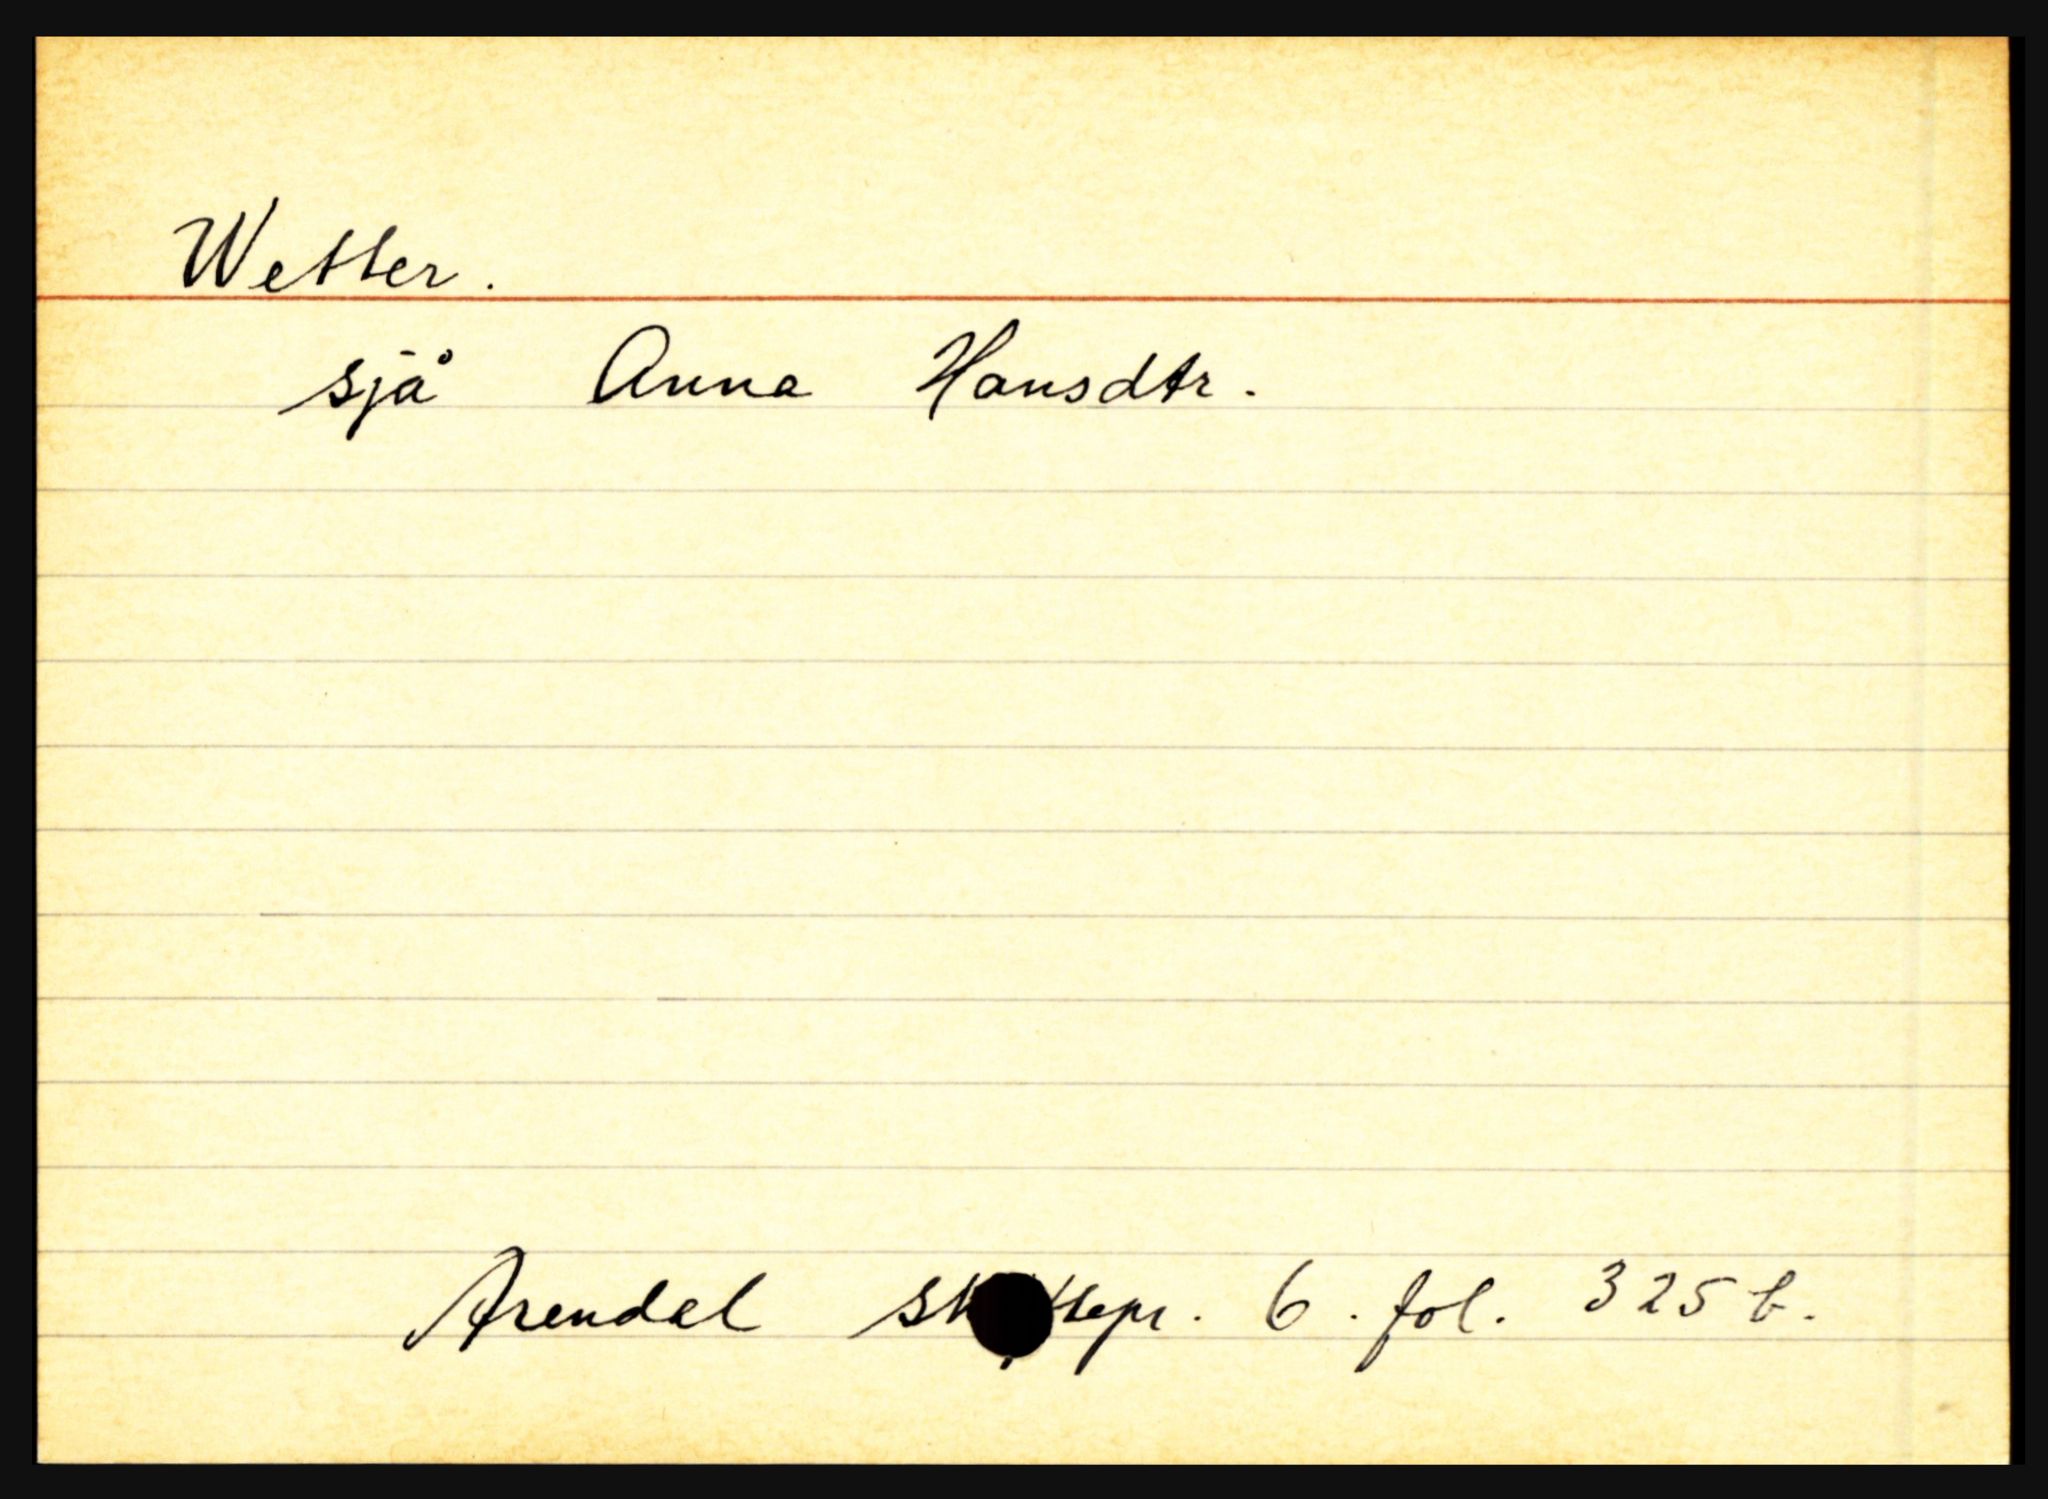 Wetter.
sjå Anna Hansdtr.
Arendal skiftepr. 6. fol. 325 b.